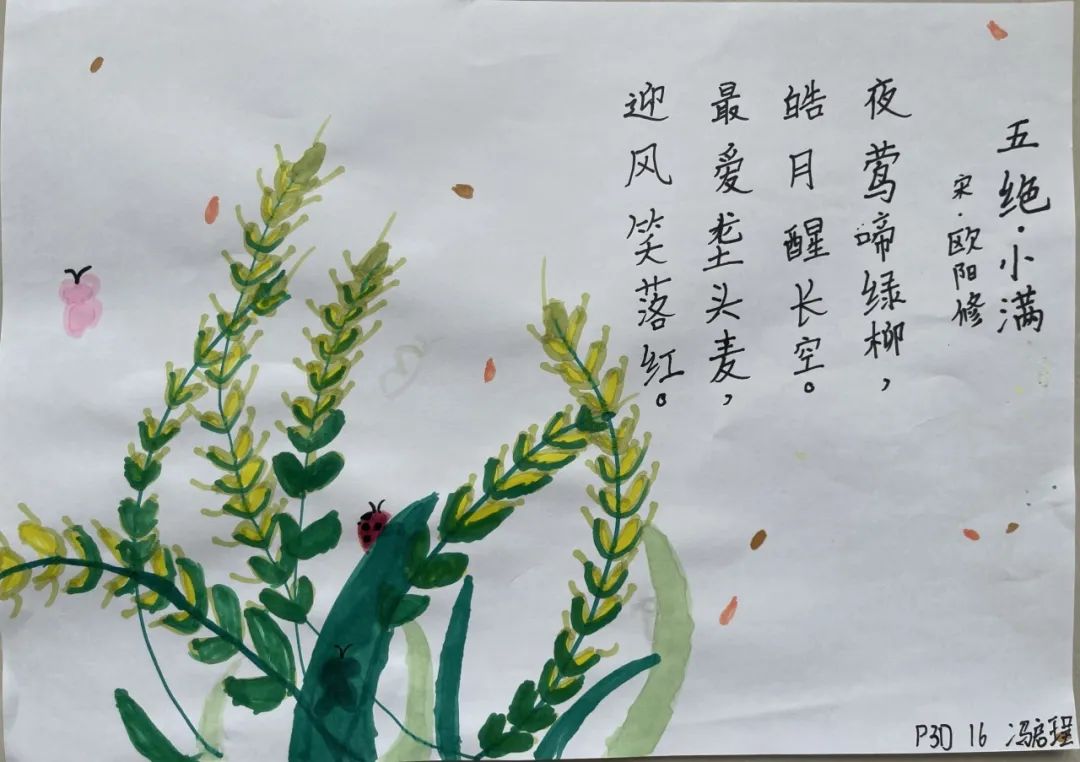 五绝·小满
宋·欧阳修
夜莺啼绿柳，
皓月醒长空。
最爱垄头麦，
迎风笑落红。
P3D 16 冯启程